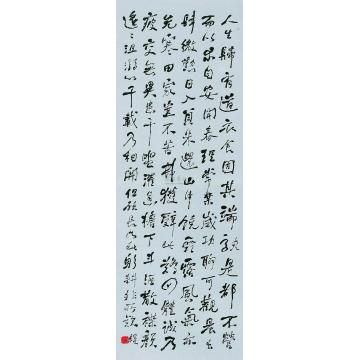 人生歸有道衣食固其端孰是都不營
而以求自安開春理常業歲功聊可觀晨出
肆微勤日入負耒還山中饒霜露風氣亦
先寒田家豈不苦弗獲辭此難四體誠乃
疲庶無異患干盥濯息檐下斗酒散襟顏
遙遙沮溺心千載乃相關但願長如此躬耕非所歎